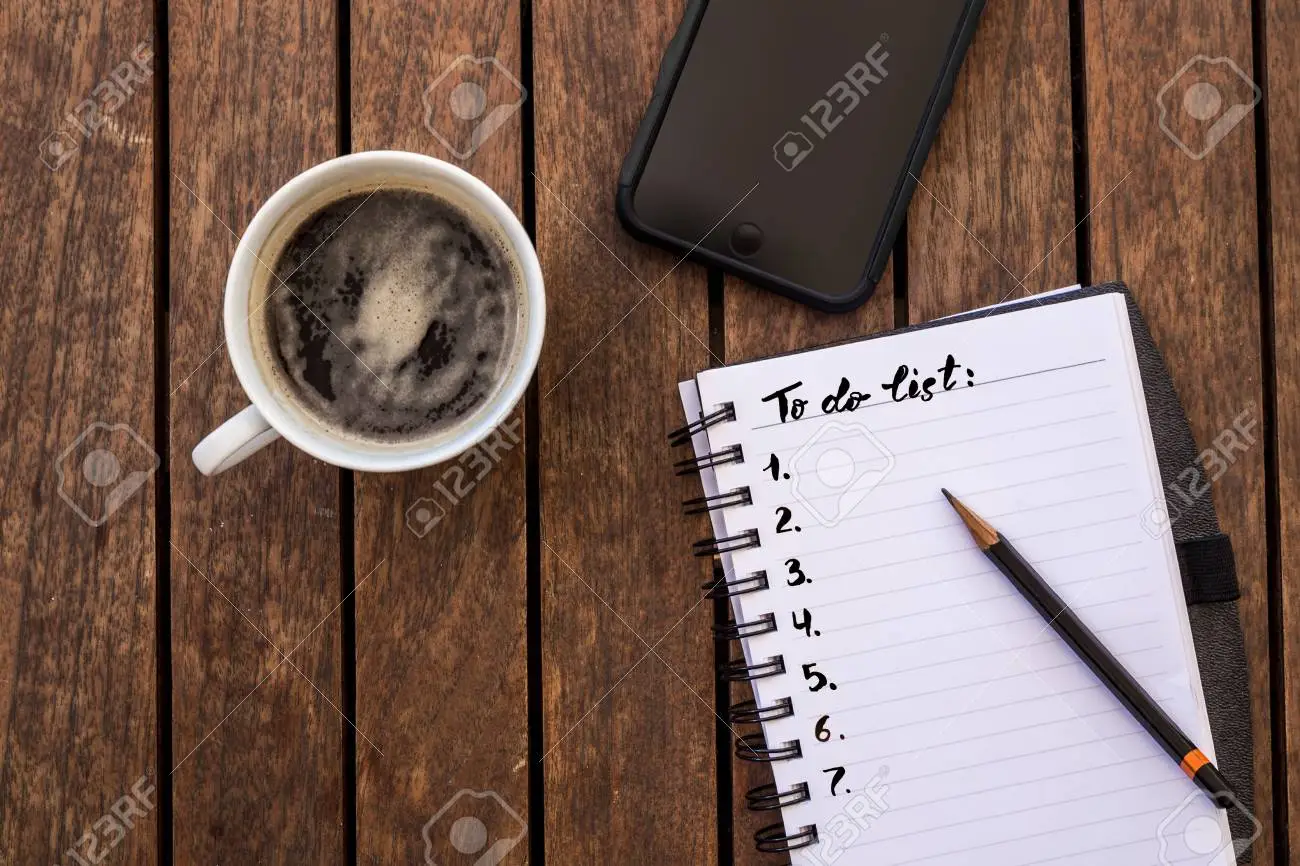 To do list:
1.
2.
3.
4.
5.
6.
7.
123RF
123RF
123RF
123RF
123RF
123RF